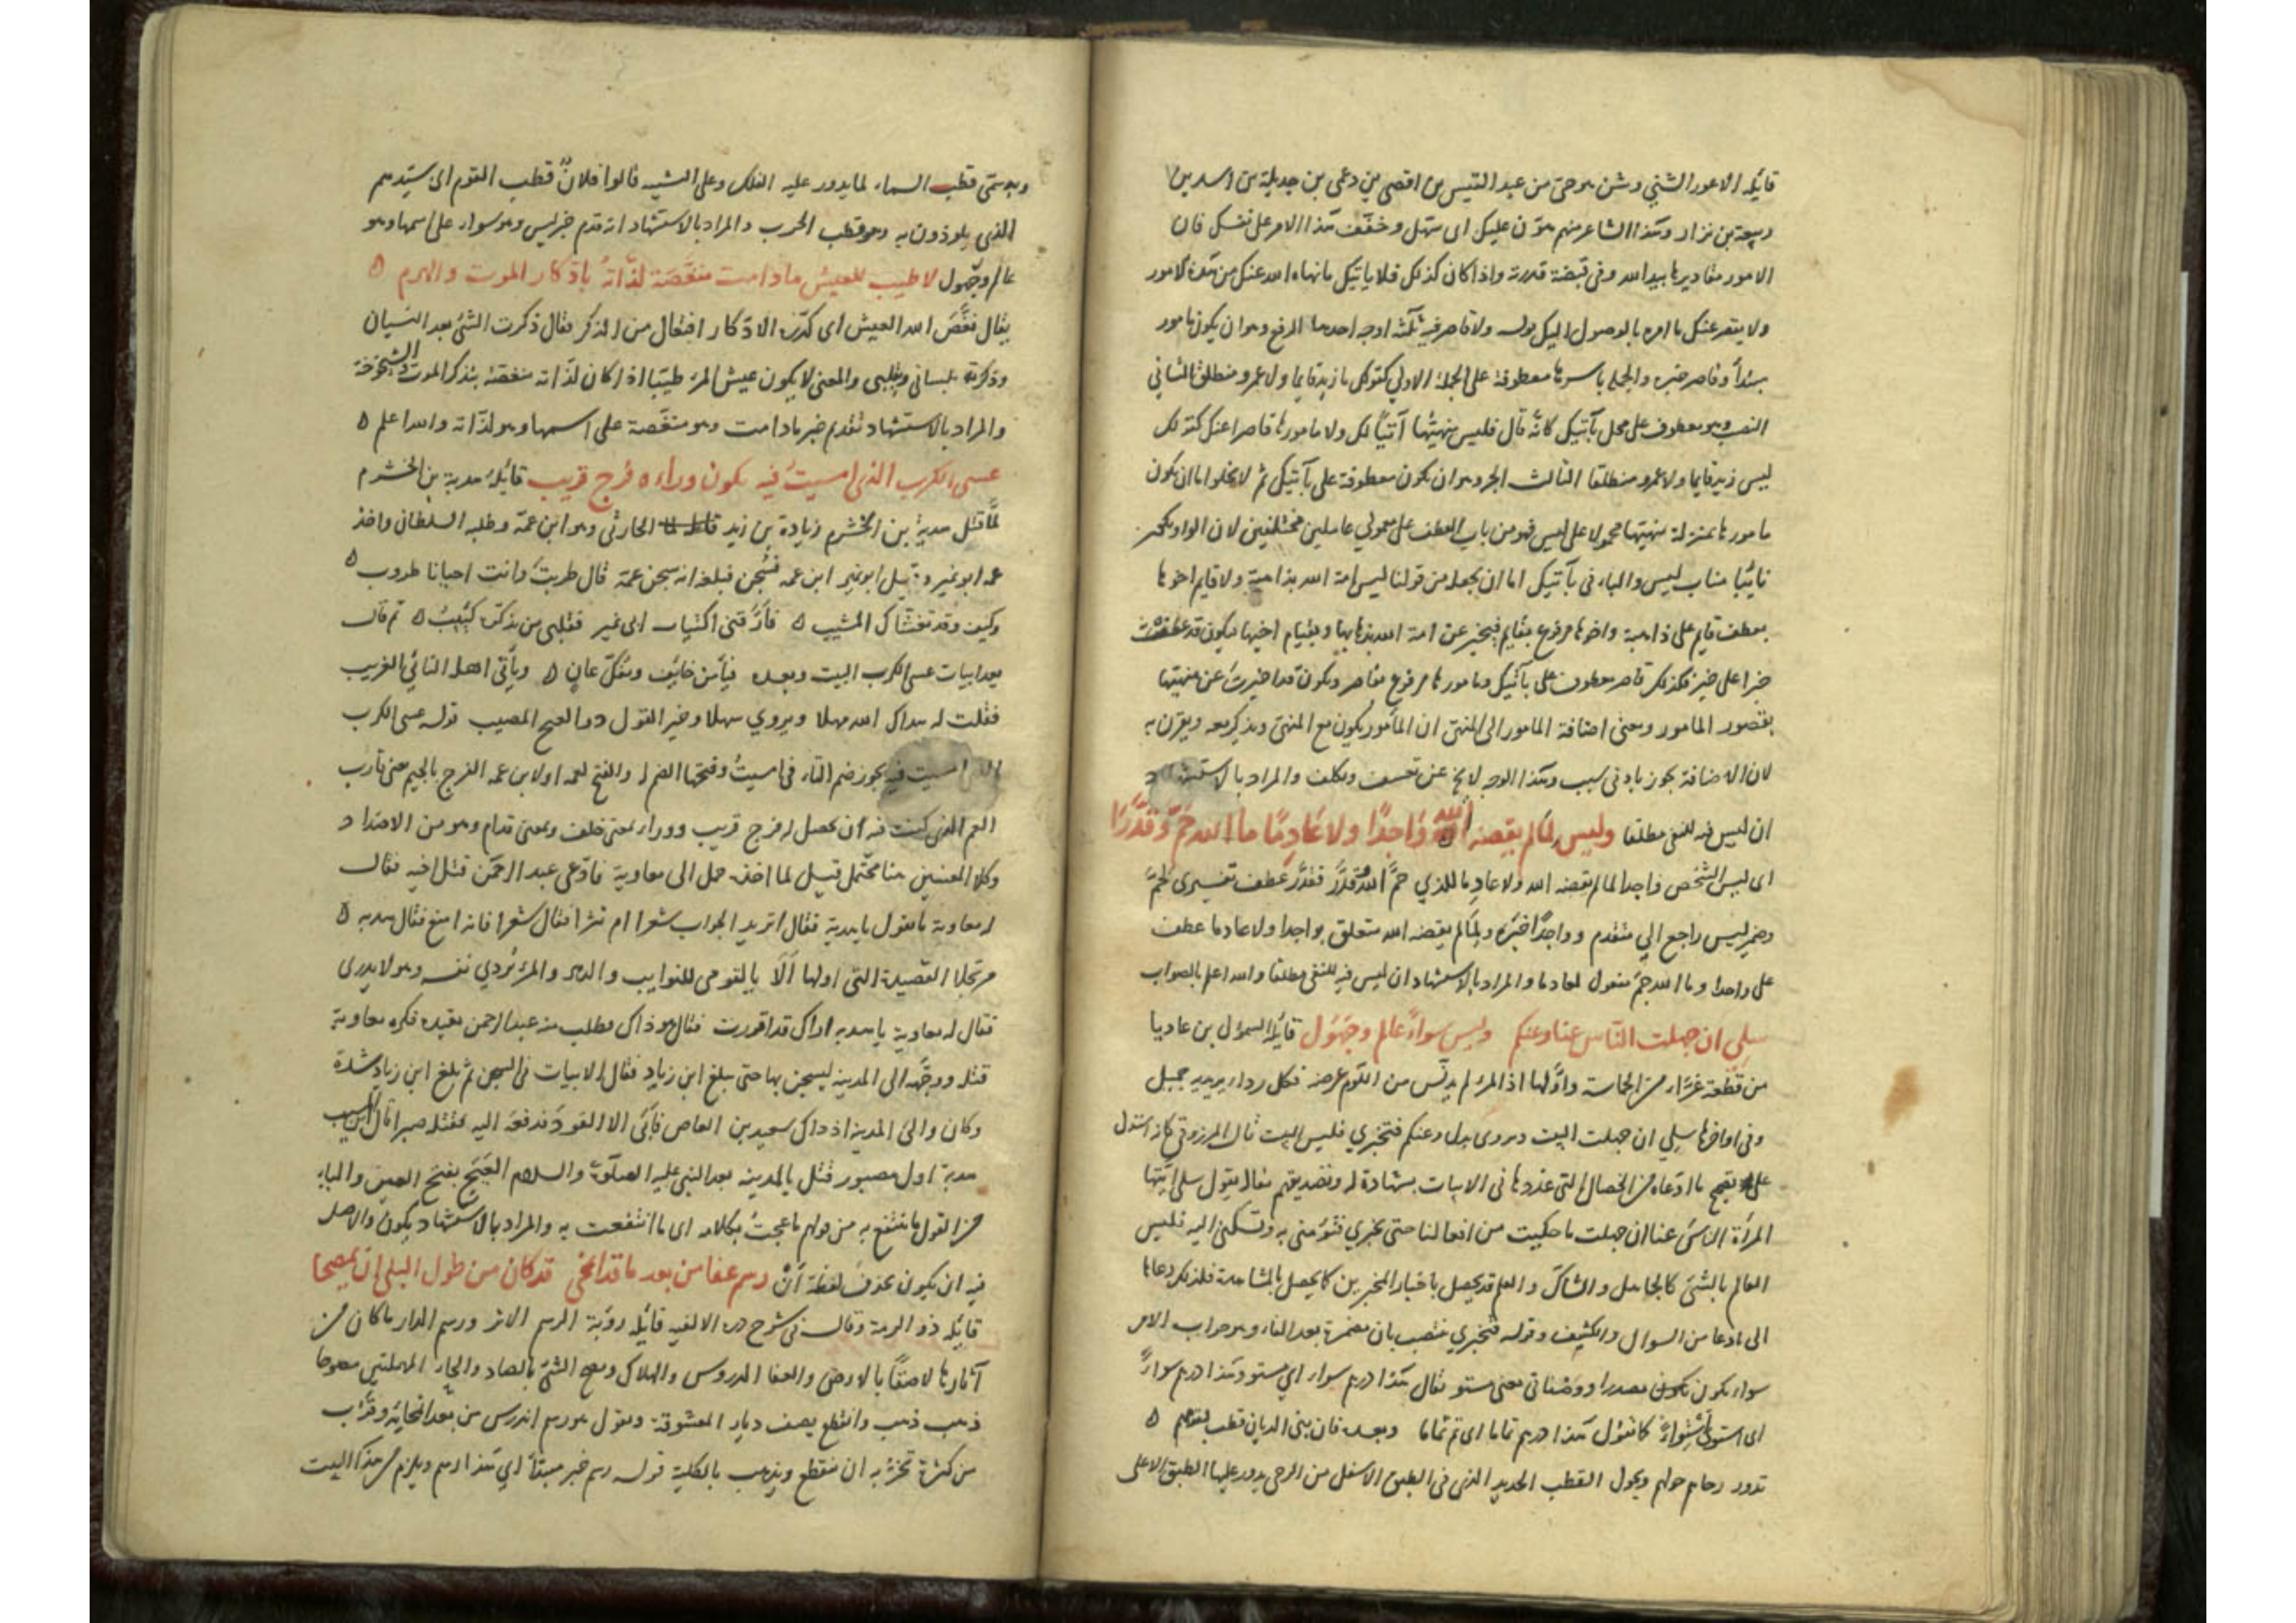 قائله الاعور الشني وشن هو حي من عبد القيس بن افصى بن دعمي بن جديلة بن اسد بن
ربيعة بن نزار وهذا الشاعر منهم هوّن عليك اى سهل وخفف هذا الامر على نفسك فان
الامور مقاديرها بيد الله وفي قبضة قدرته واذا كان كذلك فلا ياتيك ما نهاه الله عنك من هذه الامور
ولا يقصر عنك ما امره بالوصول اليك قوله ولا قاصر فيه ثلثة اوجه احدها الرفع وهو ان يكون مامور
مبتدأ وقاصر خبره والجملة باسرها معطوفة على الجملة الاولى كقولك ما زيد قايما ولا عمرو منطلق الثاني
النصب وهو معطوف على محل بآتيك كانّه قال فليس منهيّها آتيًا لك ولا مامورها قاصرا عنك كقولك
ليس زيد قايما ولا عمرو منطلقا الثالث الجر وهو ان يكون معطوفة على بآتيك ثم لا يخلوا اما ان يكون
مامورها بمنزلة منهيها محمولا على ليس فهو من باب العطف على معمولي عاملين مختلفين لان الواو يكون
نائبا مناب ليس والباء في بآتيك اما ان يجعله من قولنا ليس امة الله بذاهبة ولا قايم اخوها
بعطف قايم على ذاهبة واخوها مرفوع بقايم فيخبر عن امة الله بذهابها وبقيام اخيها فيكون قد عطفت
خبرا على خبر فكذلك قاصر معطوف على بآتيك ومامورها مرفوع بقاصر ويكون قد اخبرت عن منهيّها
بقصور المامور ومعنى اضافة المامور الى المنهي ان المأمور يكون مع المنهي ويذكر معه ويقرن به
لان الاضافة يجوز بادنى سبب وهذا الوجه لا يخ عن تعسف وتكلف والمراد بالاستشهاد
ان ليس فيه للنفي مطلقا وليس لما لم يقضه الله واجدًا ولا عادمًا ما الله حمّ وقدّرًا
اى ليس الشخص واجدا لما لم يقضه الله ولا عادما للذي حمّ الله وقدّر فقدّر عطف تفسيرى لحمّ
وضمير ليس راجع الي متقدم وواجدًا خبره ولما لم يقضه الله متعلق بواجدا ولا عادما عطف
على واجدا وما الله حم مفعول لعادما والمراد بالاستشهاد ان ليس فيه للنفي مطلقا والله اعلم بالصواب
سلي ان جهلت النّاس عنا وعنكم وليس سواءً عالم وجهول قائله السموٴل بن عاديا
من قطعة غرّاء من الحماسة واوّلها اذا المرء لم يدنس من اللوم عرضه فكل رداء يرتديه جميل
وفي اواخرها سلي ان جهلت البيت ويروى بدل وعنكم فتخبري فليس البيت قال المرزوقي كانه استدل
على تصحيح ما ادّعاه من الخصال التي عدّدها في الابيات بشهادة له وتصديقهم مقاله يقول سلي ايتها
المرأة الناس عنا ان جهلت ما حكيت من افعالنا حتى تخبري فتؤمني به وتسكني اليه فليس
العالم بالشئ كالجاهل والشاكّ والعلم قد يحصل باخبار المخبرين كما يحصل بالمشاهدة فلذلك دعاها
الى ما دعا من السوال والكشف وقوله فتخبري منتصب بان مضمرة بعد الفاء وهو جواب الامر
سواء يكون مصدرا ووصفا في معنى مستو يقال هذا درهم سواء اي مستو وهذا درهم سواءً
اى استوى استواءً كما تقول هذا درهم تماما اى تم تماما وبعده فان بني الديان قطب لقومهم ٥
تدور رحاهم حولهم ويجول القطب الحديد الذى في الطبق الاسفل من الرحى يدور عليها الطبق الاعلى
وبه سمّى قطب السماء لما يدور عليه الفلك وعلى التشبيه قالوا فلانٌ قطب القوم اى سيّدهم
الذى يلوذون به وهو قطب الحرب والمراد بالاستشهاد انه قدم خبر ليس وهو سواء على اسمها وهو
عالم وجهول لا طيب للعيش ما دامت منغّصة لذّاتُه بادّكار الموت والهرم ٥
يقال نغّصَ الله العيش اى كدّره الادّكار افتعال من الذكر يقال ذكرت الشئ بعد النسيان
وذكرته بلساني وبقلبى والمعنى لا يكون عيش المرء طيّبا اذا كان لذّاته منغصة بتذكر الموت والشيخوخة
والمراد بالاستشهاد تقديم خبر مادامت وهو منغّصة على اسمها وهو لذّاته والله اعلم ٥
عسى الكرب الذى امسيتُ فيه يكون وراءه فرج قريب قائلهُ هدبة بن الخشرم
لمّا قتل هدبة بن الخشرم زيادة بن زيد الحارثي وهو ابن عمّه وطلبه السلطان واخذ
عمه ابو نمير وقيل ابو نمير ابن عمه فسُجن فبلغه انه سجن عمّه قال طربتَ وانت احيانا طروب ٥
وكيف وقد تغشّاك المشيب ٥ فأرّقني اكتئاب ابى نمير فقلبى من تذكّره كئيب ٥ ثم قال
بعد ابيات عسى الكرب البيت وبعده فيأمن خايف ويفكّ عانٍ ٥ ويأتي اهله النائي الغريب
فقلت له هداك الله مهلا ويروي سهلا وخير القول ذو العيج المصيب قوله عسى الكرب
الذى امسيت فيه يجوز ضم التاء في امسيتُ وفتحها الضم له والفتح لعمه او لابن عمه الفرج بالجيم معنى قارب
الغم الذى كنت فيه أن يحصل له فرج قريب ووراء بمعنى خلف وبمعنى قدام وهو من الاضداد
وكلا المعنيين هنا محتمل قيل لما اخذه حمل الى معاوية فادّعى عبد الرحمن قتل اخيه فقال
له معاوية ما تقول يا هدبة فقال اتريد الجواب شعرا ام نثرا فقال شعرا فانه امتع فقال هدبه ٥
مرتجلا القصيدة التى اولها ألا يا لقومى للنوايب والدهر والمرء يُردي نفسه وهو لا يدرى
فقال له معاوية يا هدبه اراك قد اقررت فقال هو ذاك فطلب منه عبد الرحمن تقيده فكره معاوية
قتله ووجّهه الى المدينه ليسجن بها حتى يبلغ ابن زياد فقال الابيات فى السجن ثم بلغ ابن زياد شدة
وكان والى المدينة اذ ذاك سعيد بن العاص فأبى الا القود فدفعه اليه فقتله صبرا قال ابن المسيب
هدبة اول مصبور قتل بالمدينه بعد النبي عليه الصلوة والسلام العَيَج بفتح العين والياء
من القول ما ينتفع به من قولهم ما عجتُ بكلامه اى ما انتفعت به والمراد بالاستشهاد يكون والاصل
فيه ان يكون بحذف لفظة أنْ رسم عفا من بعد ما قد امّحى قد كان من طول البلى ان يمصحا
قائله ذو الرمة وقال في شرح الالفيه قائله رؤبة الرسم الاثر ورسم الدار ما كان من
آثارها لاصقًا بالارض والعفا الدروس والهلاك ومصح الشئ بالصاد والحاء المهملتين مصوحا
ذهب ذهب وانقطع يصف ديار المعشوقة ويقول هو رسم اندرس من بعد انمحائه وقرُب
من كثرة ان ينقطع ويذهب بالكلية قوله رسم خبر مبتدأ اي هذا رسم ويلزم من هذا البيت